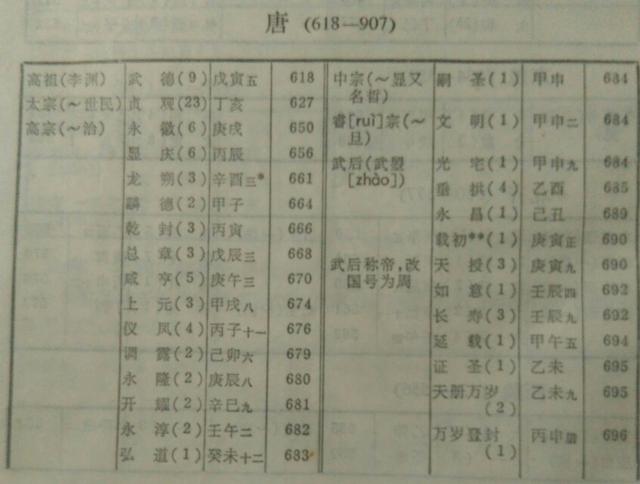 唐 (618—907)
高祖(李渊) 武德(9) 戊寅五 618
太宗(～世民) 贞观(23) 丁亥 627
高宗(～治) 永徽(6) 庚戌 650
显庆(6) 丙辰 656
龙朔(3) 辛酉三* 661
麟德(2) 甲子 664
乾封(3) 丙寅 666
总章(3) 戊辰三 668
咸亨(5) 庚午三 670
上元(3) 甲戌八 674
仪凤(4) 丙子十一 676
调露(2) 己卯六 679
永隆(2) 庚辰八 680
开耀(2) 辛巳九 681
永淳(2) 壬午二 682
弘道(1) 癸未十二 683
中宗(～显又 嗣圣(1) 甲申 684
名哲)
睿[ruì]宗(～ 文明(1) 甲申二 684
旦)
武后(武曌 光宅(1) 甲申九 684
[zhào]) 垂拱(4) 乙酉 685
永昌(1) 己丑 689
载初**(1) 庚寅正 690
武后称帝，改 天授(3) 庚寅九 690
国号为周 如意(1) 壬辰四 692
长寿(3) 壬辰九 692
延载(1) 甲午五 694
证圣(1) 乙未 695
天册万岁 乙未九 695
(2)
万岁登封 丙申腊 696
(1)